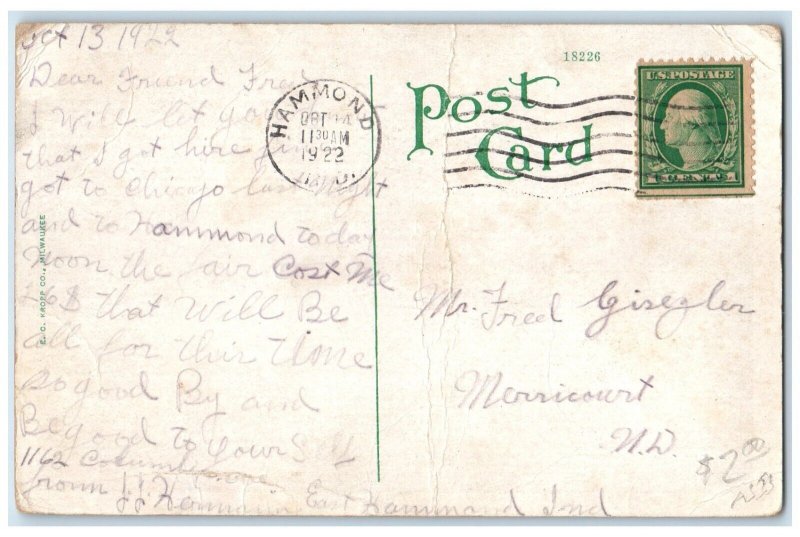 Oct 13 1922
Dear Friend Fred
I Will let you
that I got here fine
got to Chicago last night
and to Hammond today
Noon the fair Cost me
26$ that Will Be
all for this time
so good By and
Be good to yourself
1162 Columbia ave
from J.J. Hermann East Hammond Ind
E. C. KROPP CO., MILWAUKEE
HAMMOND
OCT 14
11 30 AM
1922
IND.
18226
Post
Card
U.S. POSTAGE
1 CENT 1
Mr. Fred Gisegler
Merricourt
N.D.
$2.00